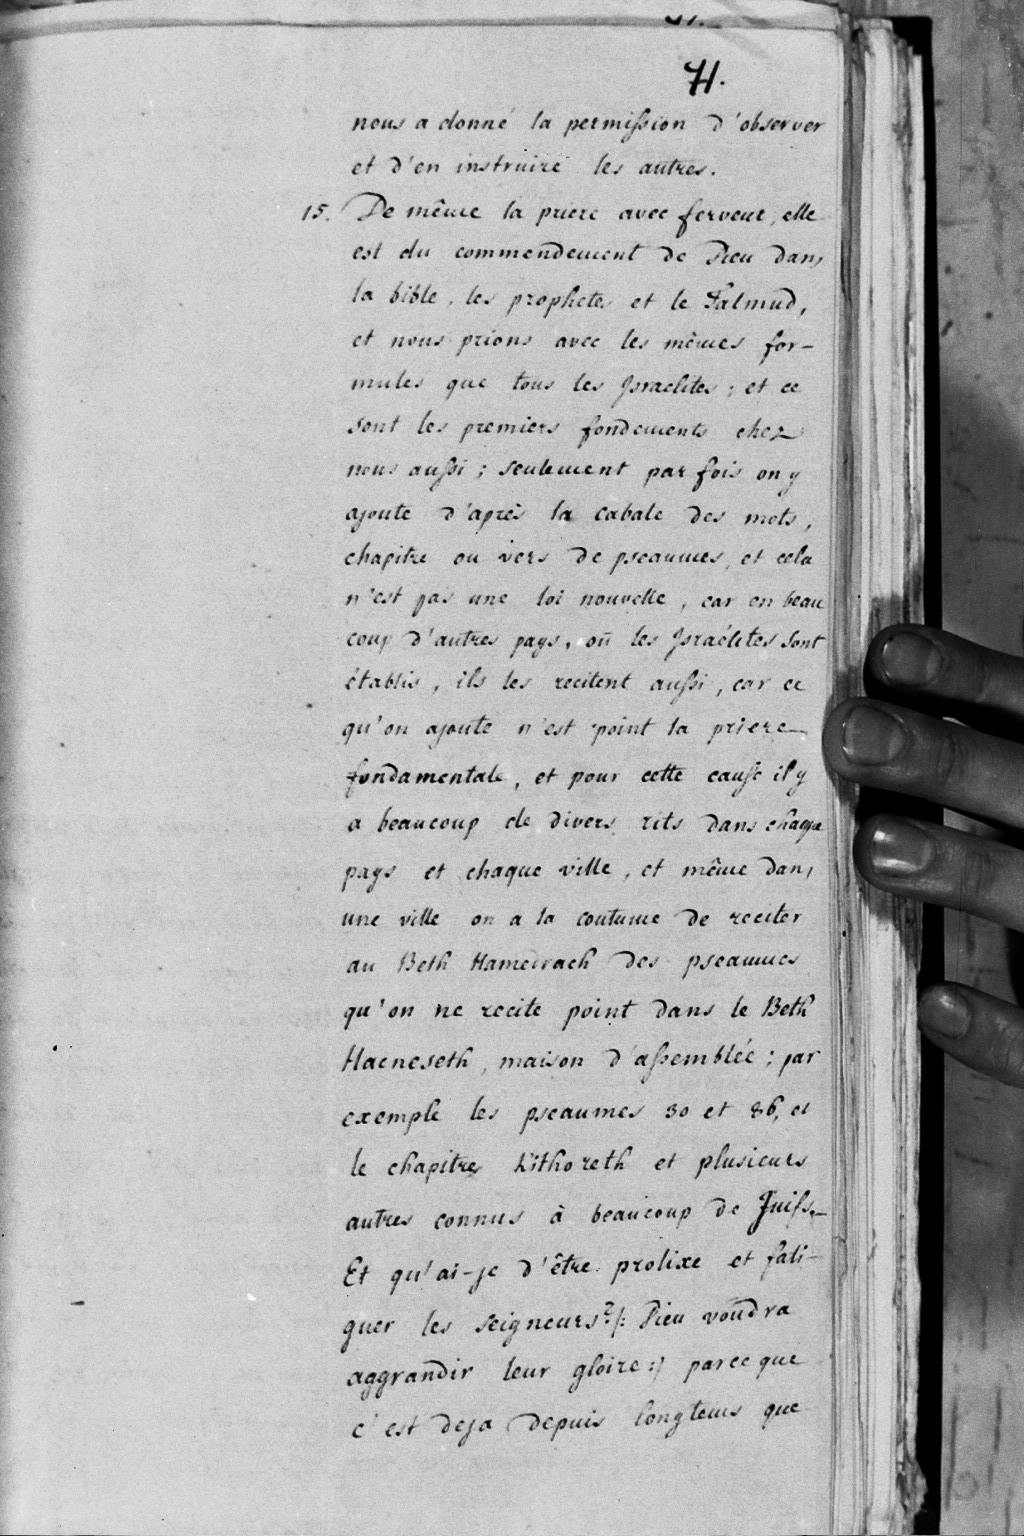 71.
nous a donné la permission d'observer
et d'en instruire les autres.
15. De même la priere avec ferveur, elle
est du commendement de Dieu dans
la bible, les prophetes et le Talmud,
et nous prions avec les mêmes for-
mules que tous les Israelites; et ce
sont les premiers fondements chez
nous aussi; seulement par fois on y
ajoute d'après la cabale des mots,
chapitre ou vers de pseaumes, et cela
n'est pas une loi nouvelle, car en beau
coup d'autres pays, où les Israélites sont
établis, ils les recitent aussi, car ce
qu'on ajoute n'est point la priere
fondamentale, et pour cette cause il y
a beaucoup de divers rits dans chaque
pays et chaque ville, et même dans
une ville on a la coutume de reciter
au Beth Hamedrach des pseaumes
qu'on ne recite point dans le Beth
Hacneseth, maison d'assemblée; par
exemple les pseaumes 30 et 86, et
le chapitre Kithoreth et plusieurs
autres connus à beaucoup de Juifs.
Et qu'ai-je d'être prolixe et fati-
guer les seigneurs? /: Dieu voudra
aggrandir leur gloire :/ parce que
c'est deja depuis longtems que